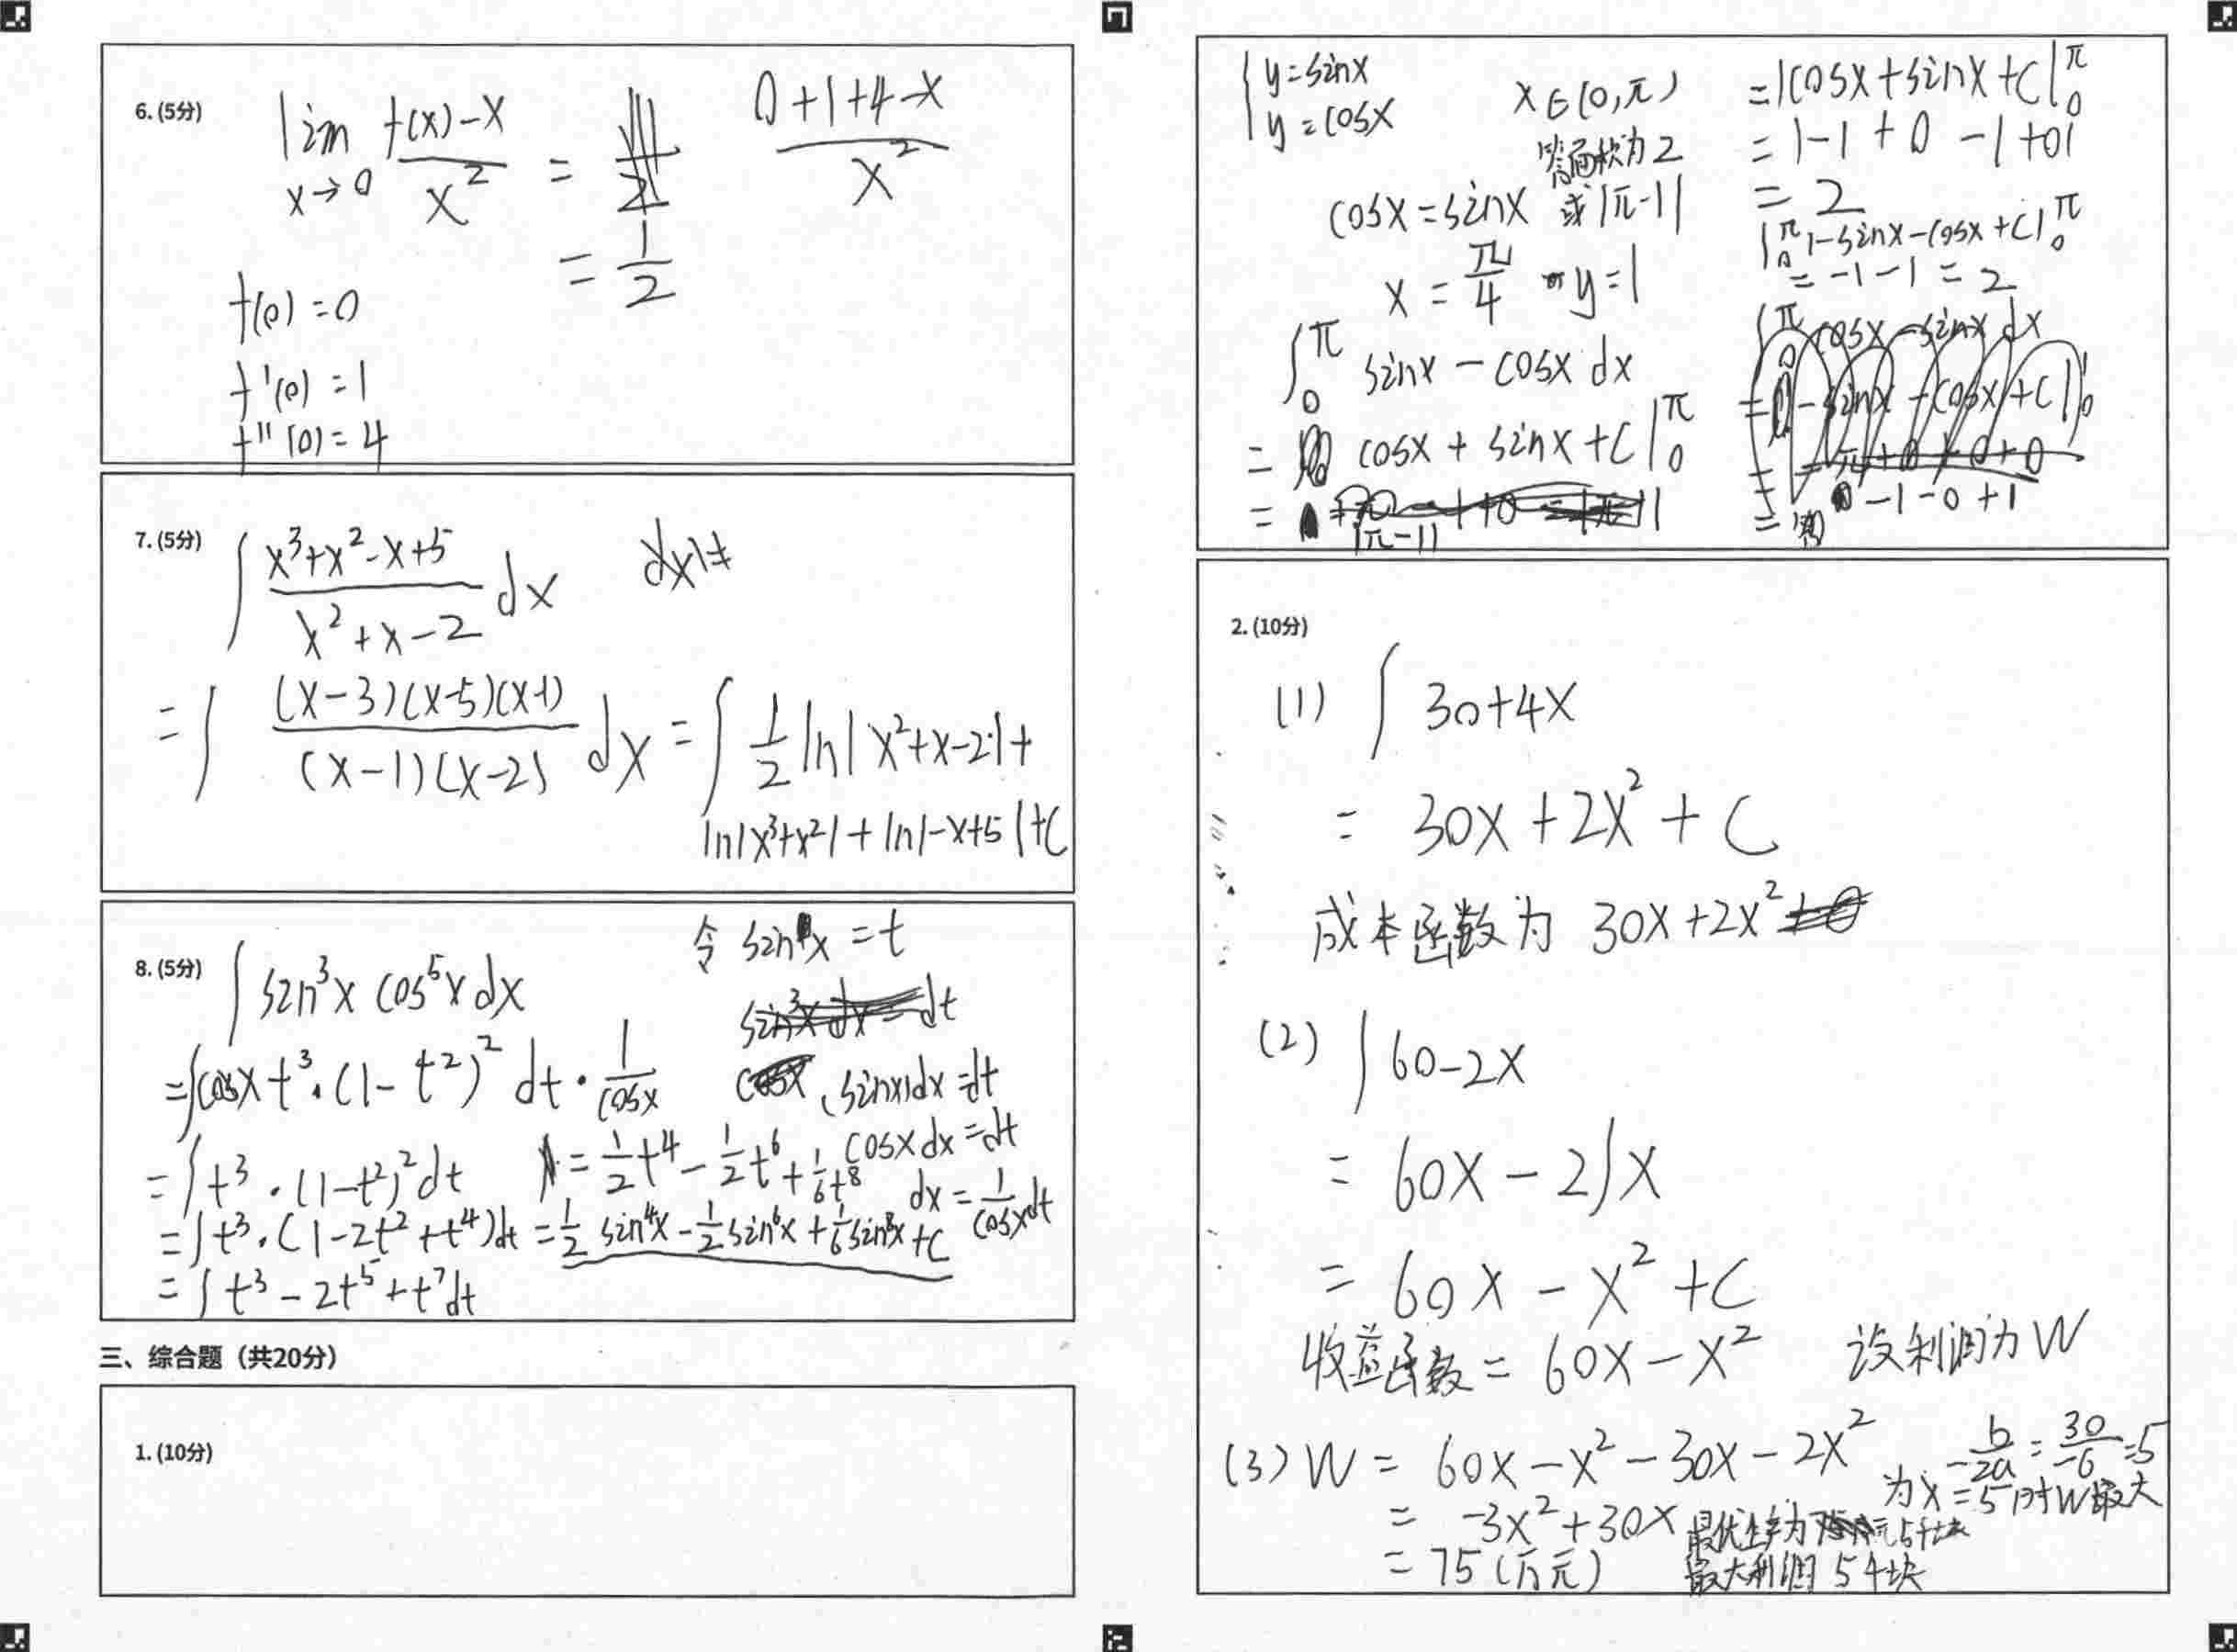 6. (5分)
lim x→0 (f(x)-x)/x² =
(0+1+4-x)/x²
= 1/2
f(0) = 0
f'(0) = 1
f''(0) = 4
7. (5分)
∫ (x³+x²-x+5)/(x²+x-2) dx
= ∫ ((x-3)(x-5)(x-1))/((x-1)(x-2)) dx = ∫ 1/2 ln|x²+x-2|+
ln|x³+x²| + ln|-x+5|+C
8. (5分)
∫ sin³x cos⁵x dx
令 sinx = t
= ∫cosx t³·(1-t²)² dt · 1/cosx
(sinx)dx = dt
cosx dx = dt
dx = 1/cosx dt
= ∫ t³·(1-t²)² dt
= ∫ t³·(1-2t²+t⁴)dt
= ∫ t³-2t⁵+t⁷dt
= 1/2 t⁴ - 1/2 t⁶ + 1/6 t⁸
= 1/2 sin⁴x - 1/2 sin⁶x + 1/6 sin⁸x + C
三、综合题（共20分）
1. (10分)
{ y = sinx
y = cosx
x∈(0,π)
答面积为2
或|π-1|
cosx = sinx
x = π/4 y=1
∫₀^π sinx - cosx dx
= cosx + sinx + C |₀^π
= |π-1|
= |cosx + sinx + C|₀^π
= |-1 + 0 - 1 + 0|
= 2
|₀^π |-sinx-cosx+C|₀^π
= -1-1 = 2
∫₀^π cosx - sinx dx
-1-0+1
2. (10分)
(1) ∫ 30+4x
= 30x + 2x² + C
成本函数为 30x+2x²
(2) ∫ 60-2x
= 60x - 2∫x
= 60x - x² + C
收益函数 = 60x - x² 设利润为W
(3) W = 60x - x² - 30x - 2x²
= -3x² + 30x
= 75 (万元)
-b/2a = 30/-6 = 5
为x=5时W最大
最优生产为 5千块
最大利润 5千块